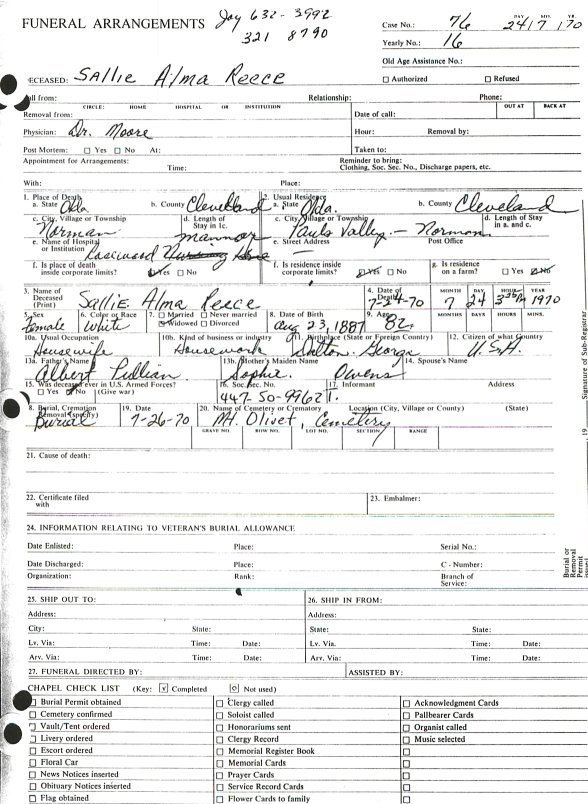 FUNERAL ARRANGEMENTS Jay 632-3992
321 8790
Case No.: 76 DAY MO. YR. 24 / 7 / 70
Yearly No.: 16
Old Age Assistance No.:
DECEASED: Sallie Alma Reece
☐ Authorized ☐ Refused
Call from: Relationship: Phone:
CIRCLE: HOME HOSPITAL OR INSTITUTION OUT AT BACK AT
Removal from: Date of call:
Physician: Dr. Moore Hour: Removal by:
Post Mortem: ☐ Yes ☐ No At: Taken to:
Appointment for Arrangements: Reminder to bring:
Time: Clothing, Soc. Sec. No., Discharge papers, etc.
With: Place:
1. Place of Death 2. Usual Residence
a. State Okla b. County Cleveland a. State Okla. b. County Cleveland
c. City, Village or Township d. Length of Stay in 1c. c. City, Village or Township d. Length of Stay in a. and c.
Norman Pauls Valley - Norman
e. Name of Hospital or Institution Rosewood Nursing Home Mannor e. Street Address Post Office
f. Is place of death inside corporate limits? ☑ Yes ☐ No f. Is residence inside corporate limits? ☑ Yes ☐ No g. Is residence on a farm? ☐ Yes ☑ No
3. Name of Deceased (Print) Sallie Alma Reece 4. Date of Death 7-24-70 MONTH 7 DAY 24 HOUR YEAR 1970
5. Sex Female 6. Color or Race White 7. ☐ Married ☐ Never married ☑ Widowed ☐ Divorced 8. Date of Birth Aug 23, 1887 9. Age 82 MONTHS DAYS HOURS MINS.
10a. Usual Occupation 10b. Kind of business or industry 11. Birthplace (State or Foreign Country) 12. Citizen of what Country
Housewife Housework Shelton. Georga U.S.A.
13a. Father's Name 13b. Mother's Maiden Name 14. Spouse's Name
Albert Pullian Sophie Owens
15. Was deceased ever in U.S. Armed Forces? 16. Soc. Sec. No. 17. Informant Address
☐ Yes ☑ No (Give war) 447-50-9962 T.
18. Burial, Cremation Removal (Specify) 19. Date 20. Name of Cemetery or Crematory Location (City, Village or County) (State)
Burial 7-26-70 Mt. Olivet, Cemetery
GRAVE NO. ROW NO. LOT NO. SECTION RANGE
21. Cause of death:
22. Certificate filed with 23. Embalmer:
24. INFORMATION RELATING TO VETERAN'S BURIAL ALLOWANCE
Date Enlisted: Place: Serial No.:
Date Discharged: Place: C - Number:
Organization: Rank: Branch of Service:
25. SHIP OUT TO: 26. SHIP IN FROM:
Address: Address:
City: State: State: State:
Lv. Via: Time: Date: Lv. Via: Time: Date:
Arv. Via: Time: Date: Arv. Via: Time: Date:
27. FUNERAL DIRECTED BY: ASSISTED BY:
CHAPEL CHECK LIST (Key: ☑ Completed ⊡ Not used)
☐ Burial Permit obtained ☐ Clergy called ☐ Acknowledgment Cards
☐ Cemetery confirmed ☐ Soloist called ☐ Pallbearer Cards
☐ Vault/Tent ordered ☐ Honorariums sent ☐ Organist called
☐ Livery ordered ☐ Clergy Record ☐ Music selected
☐ Escort ordered ☐ Memorial Register Book ☐
☐ Floral Car ☐ Memorial Cards ☐
☐ News Notices inserted ☐ Prayer Cards ☐
☐ Obituary Notices inserted ☐ Service Record Cards ☐
☐ Flag obtained ☐ Flower Cards to family ☐
Signature of Sub-Registrar
19
Burial or
Removal
Permit